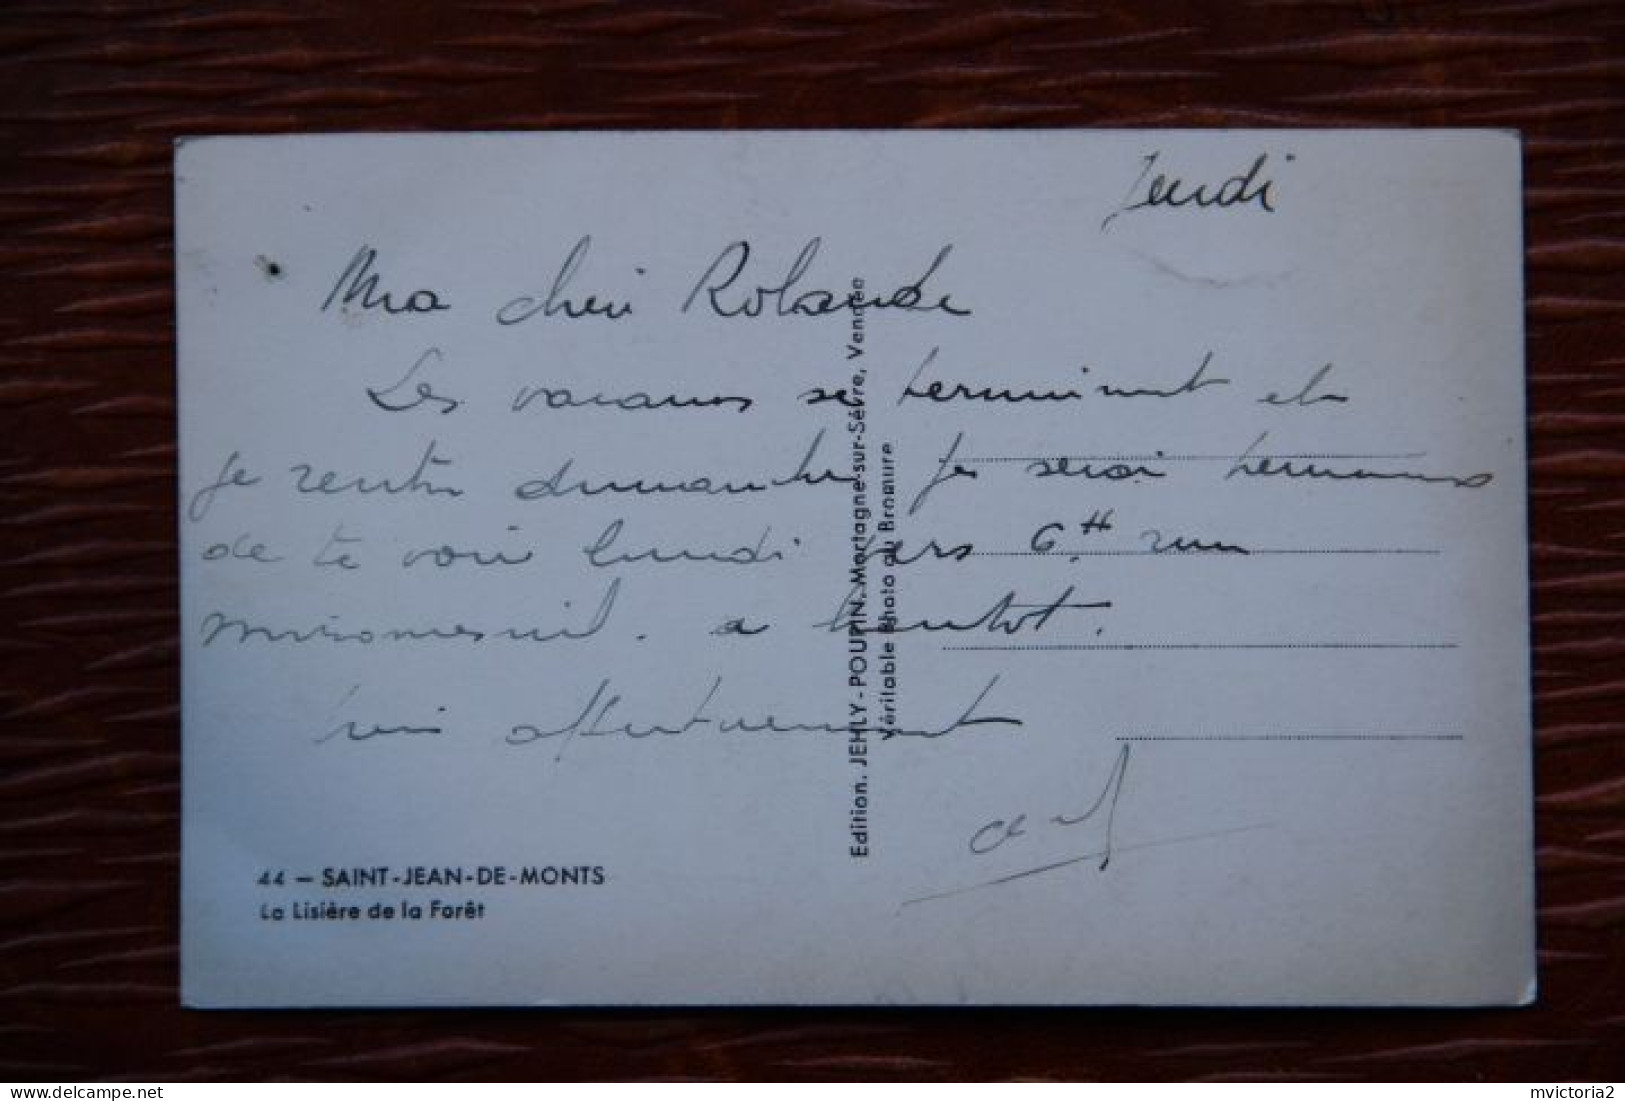 Jeudi
Ma cheri Rolande
Les vacances se terminent et
je rentre dimanche je serai heureux
de te voir lundi vers 6.H rue
miromesnil. a bientot.
bien affectueusement
44 - SAINT-JEAN-DE-MONTS
La Lisière de la Forêt
Edition. JEHLY-POUPIN. Mortagne-sur-Sèvre, Vendée
Véritable Photo au Bromure
mvictoria2